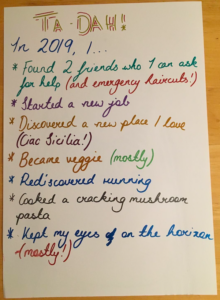 TA-DAH!
In 2019, I...
* Found 2 friends who I can ask
for help (and emergency haircuts!)
* Started a new job
* Discovered a new place I love
(Cac Sicilia!)
* Became veggie (mostly)
* Rediscovered running
* Cooked a cracking mushroom
pasta
* Kept my eyes on the horizon
(mostly!)